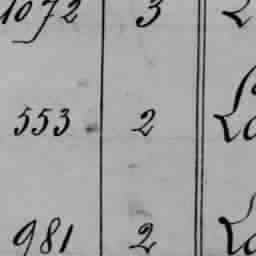 1072 3
553 2
981 2